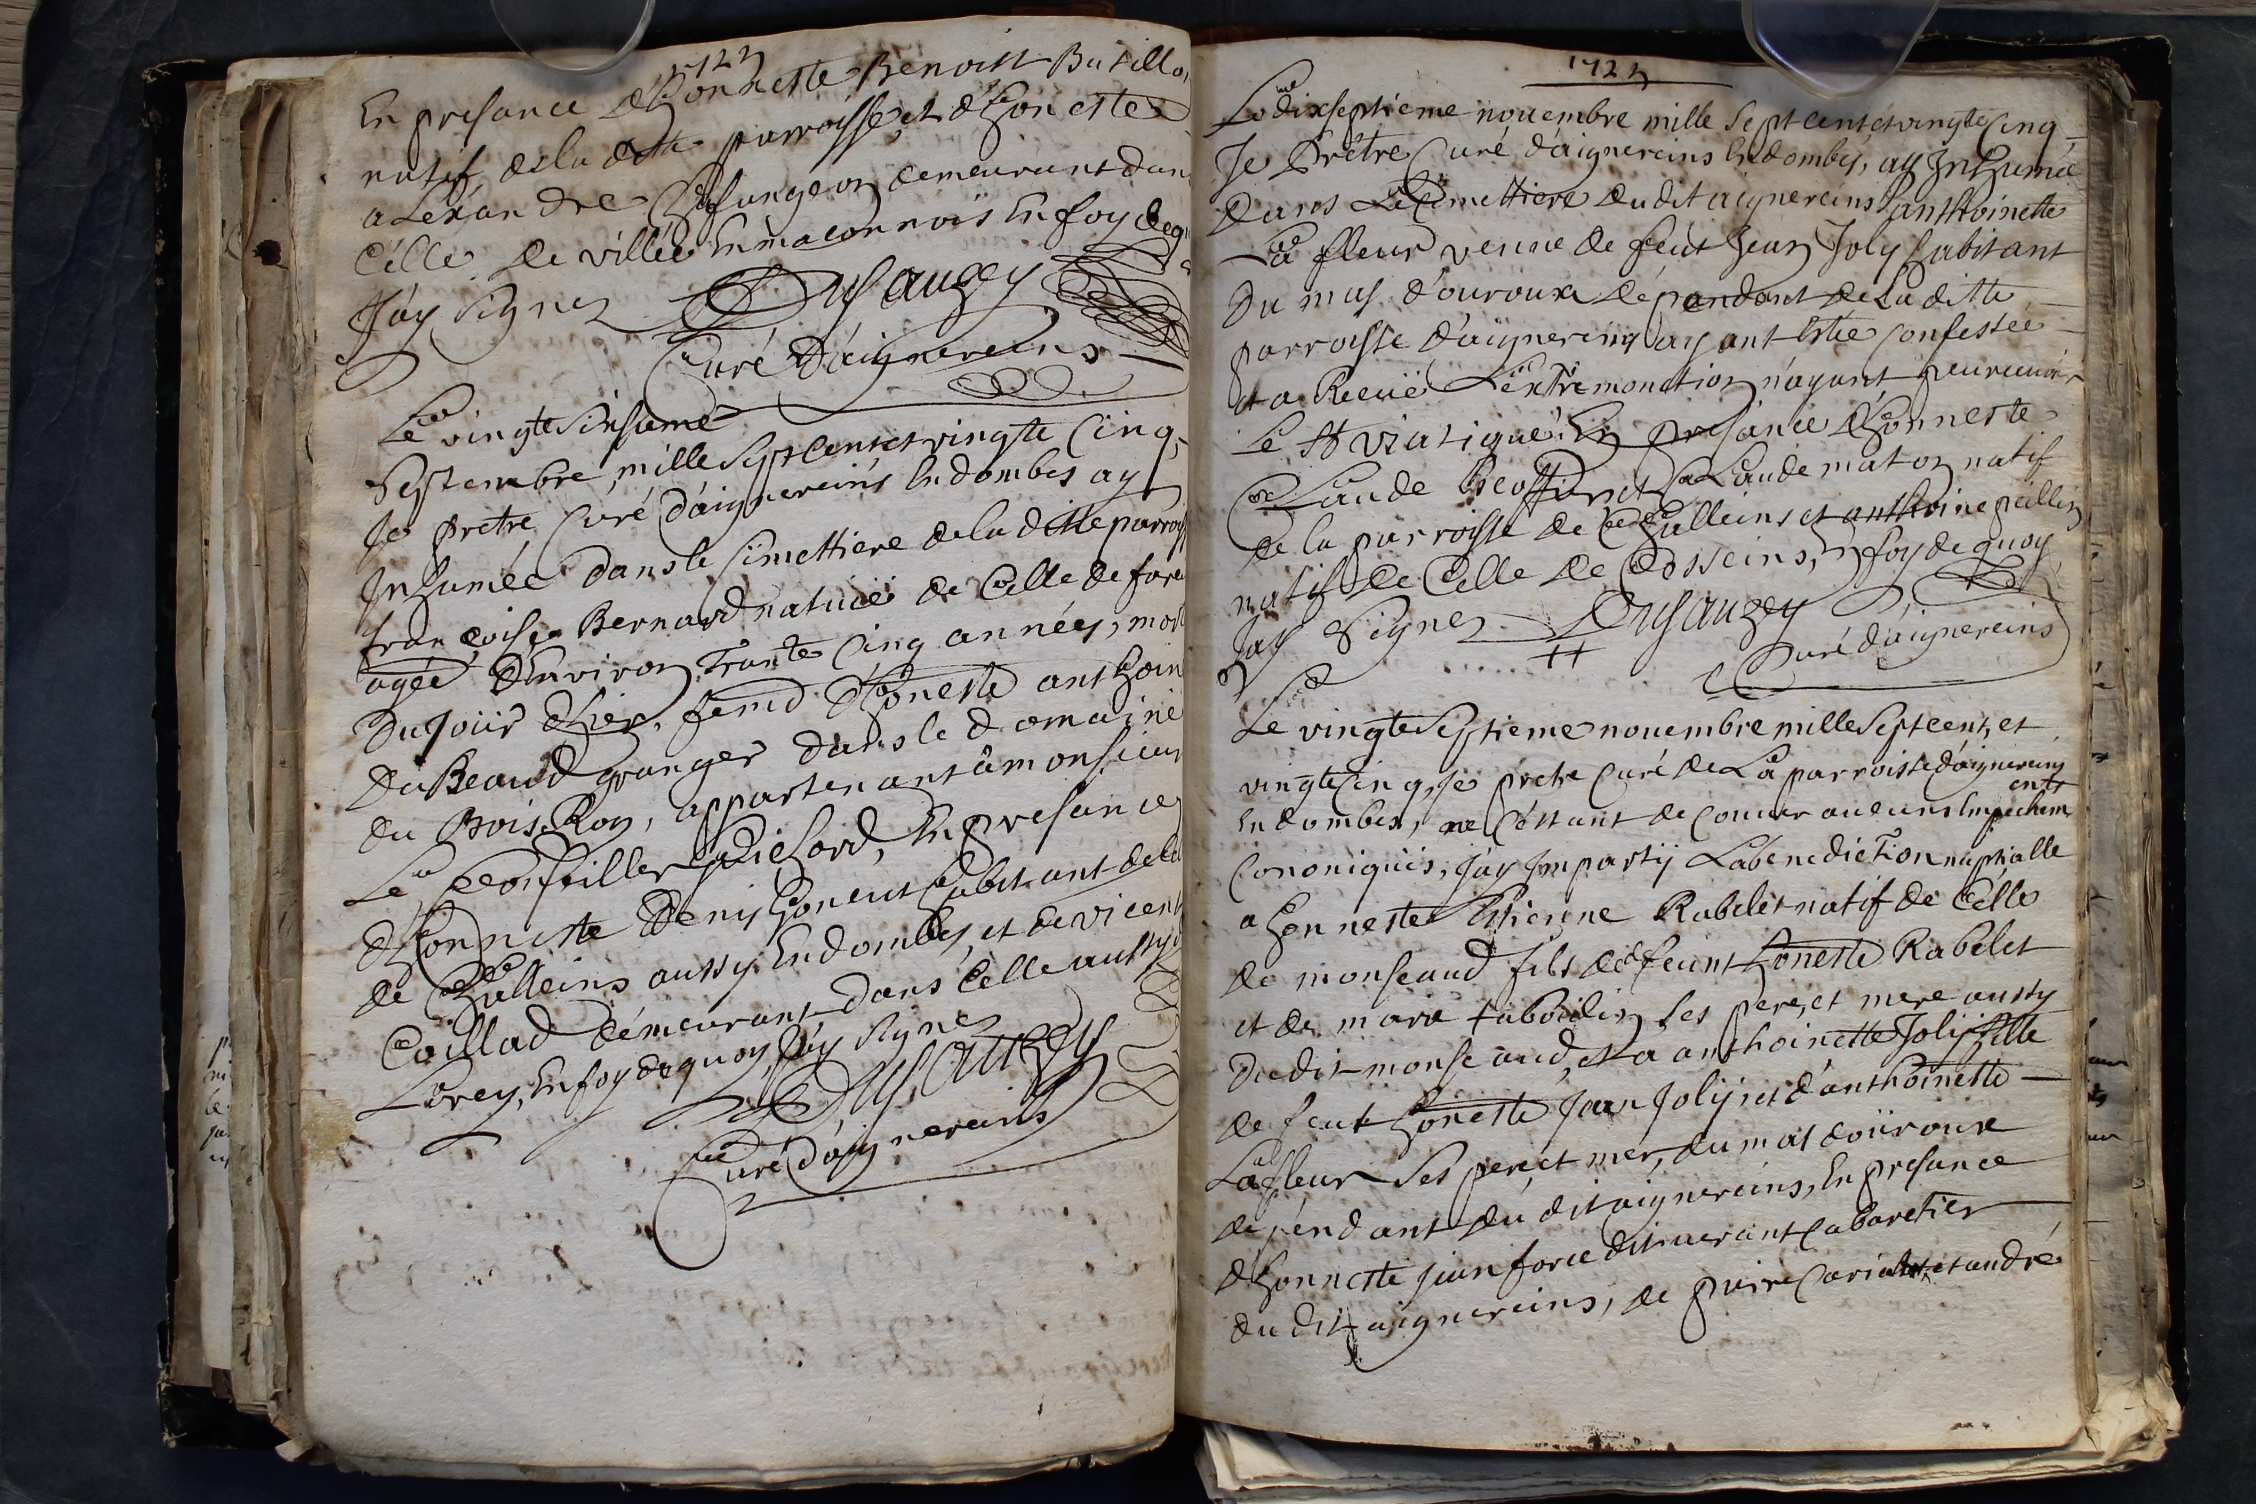 1725
En presance d'honneste Benoist Butillo
natif de la ditte parroisse, et d'honeste
alexandre Chafungeon demeurant dan
Célle de villée En maconnois En foy de qu
J'ay signez Dusauzey
Curé d'aignereins
Le vingte sinsieme
Septembre, mille sept cent et vingte Cinq,
Je pretre Curé d'aignereins En dombes ay
Inhumée dans le Cimettiere de la ditte parroiss
francoise Bernard natiué de Celle de fare
agée d'Environ Trante Cinq années, mor
Du Jour d'hier, femd d'honeste anthoin
DuBeaud granger dans le domaine
du Bois Ron, appartenant à monsieur
Le Conseiller Dichard, En presance
d'honneste Denis honeut habitant de la
de Challeins aussy En dombes, et de vicent
Coillad démeurant dans Célle aussy
Lorey, En foy de quoy J'ay signez
Dusauzey
Curé D'aignereins
1725
Le dixseptieme nouembre mille Sept Cent et vingte Cinq
Je Prêtre Curé d'aignereins En dombes, ay Inhumée
dans Le Cimettiere du dit aignereins anthoinette
La fleur veuue de feut Jean Joly habitant
Du mas d'ouroux dépandant de La ditte
parroisse d'aignereins ayant Estée Confessée
et a Receüe L'extremonction n'ayant peu receuoir
Le St viatique. En presance d'honneste
Claude Geoffrer et Claude maton natif
de la parroisse de Challeins et anthoine peillin
natif de Celle de Cesseins, En foy de quoy
J'ay Signez Dusauzey
Curé d'aignereins
Le vingte Septieme nouembre mille Septcent, et
vingte Cinq, Je pretre Curé de La parroisse d'aignereins
En dombes, ne Cestant de Couuer aucuns Empechem
ents
Cononiquës, J'ay Impartij La benediction nuptialle
a honneste Estienne Rabelet natif de Célle
de monseaud fils de feunt honeste Rabelet
et de marie tabordin Ses pere, et mere aussy
Du dit monseaud, et a anthoinette Jolij fille
de feut honeste Jean Jolij et d'anthoinette
Lafleur Ses pere, et mer, du mas d'oüroux
dépendant du dit aignereins, En presance
d'honneste Jean force dit uerant Cabaretier
du dit aignereins, de pierre et andré